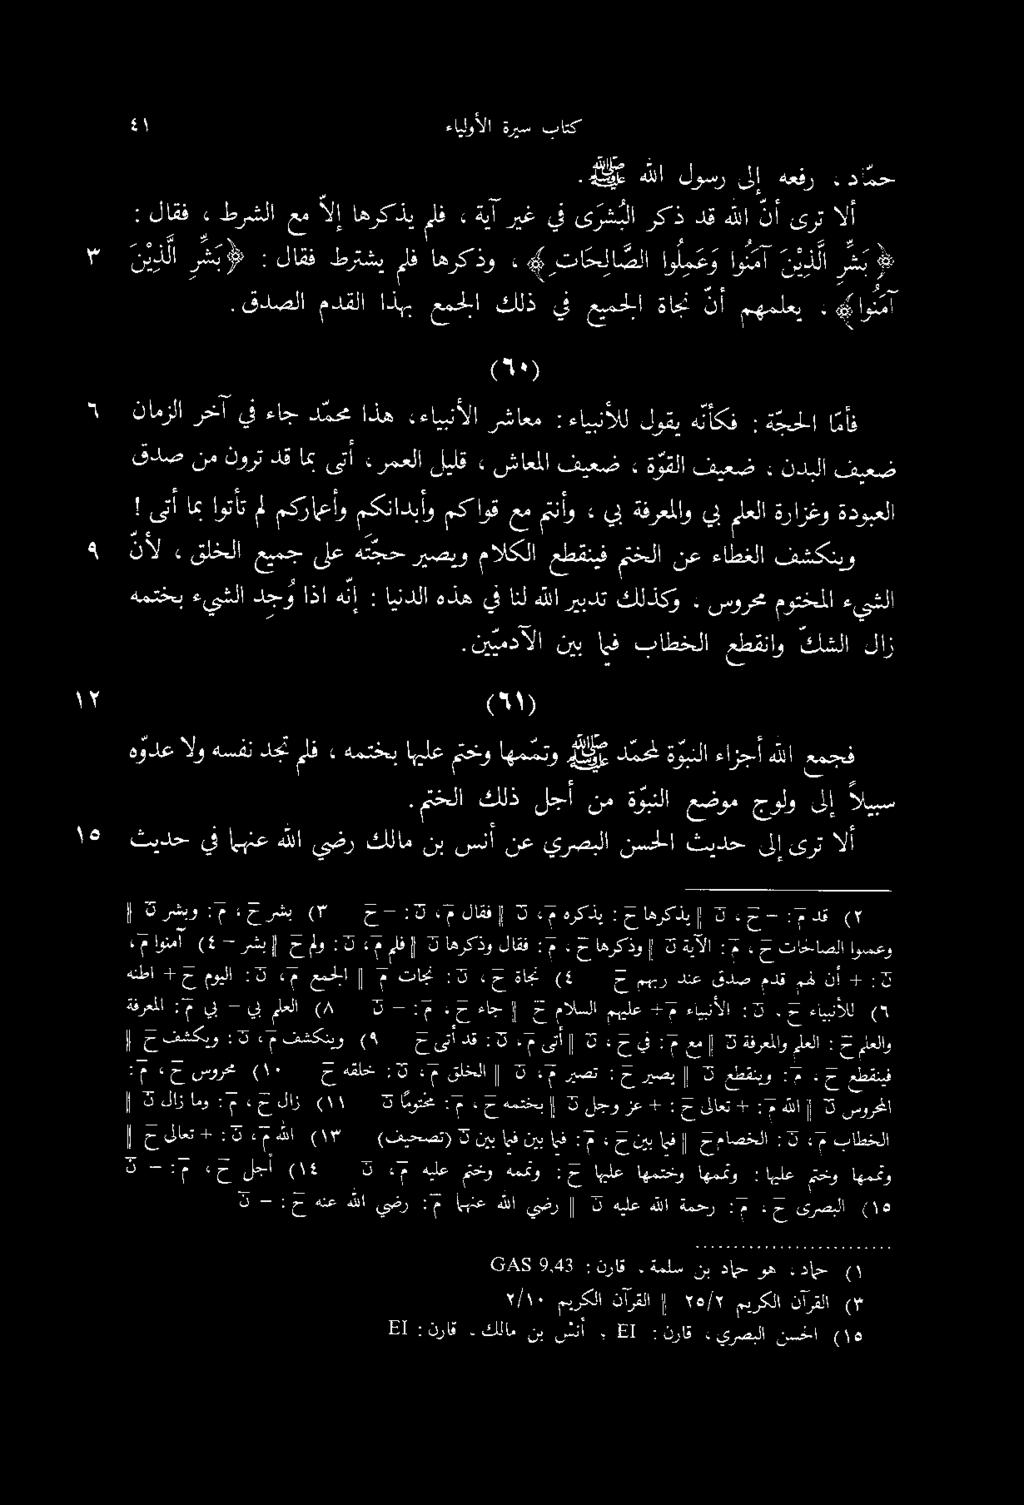 كتاب سيرة الأولياء ٤١
حمّاد، رفعه إلى رسول الله ﷺ.
ألا ترى أنّ الله قد ذكر البُشرَى في غير آية، فلم يذكرها إلاّ مع الشرط، فقال:
﴿بَشِّرِ الَّذِيْنَ آمَنُوا وَعَمِلُوا الصَّالِحَاتِ﴾، وذكرها فلم يشترط فقال: ﴿بَشِّرِ الَّذِيْنَ ٣
آمَنُوا﴾، يعلمهم أنّ نجاة الجميع في ذلك الجمع بهذا القدم الصدق.
(٦٠)
فأمّا الحجّة: فكأنّه يقول للأنبياء: معاشر الأنبياء، هذا محمّد جاء في آخر الزمان ٦
ضعيف البدن، ضعيف القوّة، ضعيف المعاش، قليل العمر، أتى بما قد ترون من صدق
العبودة وغزارة العلم بي والمعرفة بي، وأنتم مع قواكم وأبدانكم وأعماركم لم تأتوا بما أتى!
وينكشف الغطاء عن الختم فينقطع الكلام ويصير حجّته على جميع الخلق، لأنّ ٩
الشيء المختوم محروس، وكذلك تدبير الله لنا في هذه الدنيا: إنّه اذا وُجِد الشيء بختمه
زال الشكّ وانقطع الخطاب فيما بين الآدميّين.
(٦١) ١٢
فجمع الله أجزاء النبوّة لمحمّد ﷺ وتمّمها وختم عليها بختمه، فلم تجد نفسه ولا عدوّه
سبيلاً إلى ولوج موضع النبوّة من أجل ذلك الختم.
ألا ترى إلى حديث الحسن البصري عن أنس بن مالك رضي الله عنهما في حديث ١٥
٢) قد م: - ح، ن || يذكرها ح: يذكره م، ن || فقال م، ن: - ح ٣) بشر ح، م: وبشر ن ||
وعمىوا الصالحات ح، م: الآية ن || وذكرها ح، م: فقال وذكرها ن || فلم م، ن: ولم ح || بشر - ٤) آمنوا م،
ن: + أن لهم قدم صدق عند ربهم ح ٤) نجاة ح، ن: نجات م || الجمع م، ن: اليوم ح + اطنه
٦) للأنبياء ح، ن: الأنبياء م + عليهم السلام ح || جاء ح، م: - ن ٨) العلم بي - بي م: المعرفة
والعلم ح: العلم والمعرفة ن || مع م: في ح، ن || أتى م، ن: قد أتى ح ٩) وينكشف م، ن: ويكشف ح ||
فينقطع ح، م: وينقطع ن || يصير ح: تصير م، ن || الخلق م، ن: خلقه ح ١٠) محروس ح، م:
المحروس ن || الله م: + تعالى ح: + عز وجل ن || بختمه ح، م: مختومًا ن ١١) زال ح، م: وما زال ن ||
الخطاب م، ن: الخصام ح || فيما بين ح، م: فيما بين فيما بين ن (تصحيف) ١٣) الله م، ن: + تعالى ح ||
وتممها وختم عليها: وتممها وختمها عليها ح: وتممه وختم عليه م، ن ١٤) أجل ح، م: - ن
١٥) البصرى ح، م: رحمة الله عليه ن || رضي الله عنهما م: رضي الله عنه ح: - ن
١) حماد، هو حماد بن سلمة، قارن: GAS 9,43
٣) القرآن الكريم ٢٥/٢ || القرآن الكريم ٢/١٠
١٥) الحسن البصري، قارن: EI، أنس بن مالك، قارن: EI